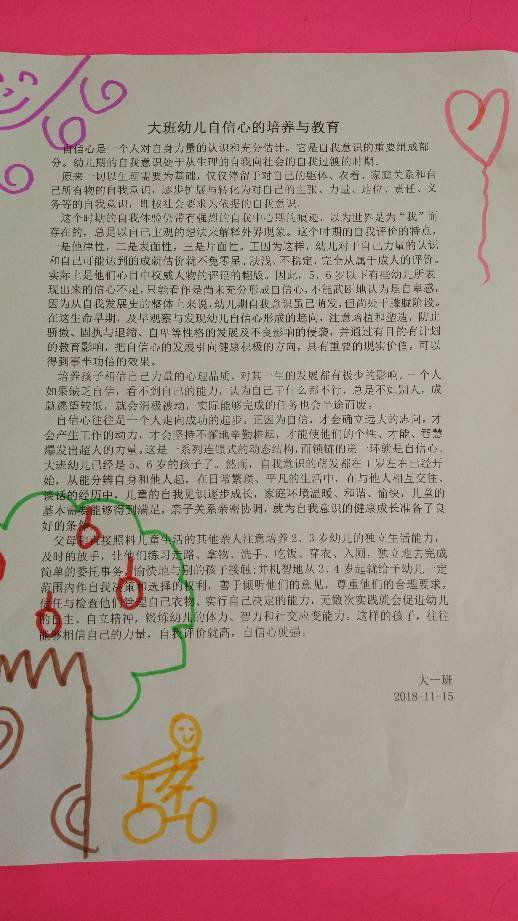 大班幼儿自信心的培养与教育
自信心是一个人对自身力量的认识和充分估计。它是自我意识的重要组成部
分。幼儿期的自我意识处于从生理的自我向社会的自我过渡的时期。
原来一切以生理需要为基础，仅仅停留于对自己的躯体、衣着、家庭关系和自
己所有物的自我意识，逐步扩展与转化为对自己的主张、力量、地位、责任、义
务等的自我意识，即按社会要求为依据的自我意识。
这个时期的自我体验仍带有强烈的自我中心期的痕迹，以为世界是为“我”而
存在的，总是以自己主观的想法来解释外界现象。这个时期的自我评价的特点，
一是他律性，二是表面性，三是片面性。正因为这样，幼儿对于自己力量的认识
和自己可能达到的成就估价就不免零星、肤浅、不稳定，完全从属于成人的评价。
实际上是他们心目中权威人物的评语的翻版。因此，5、6岁以下有些幼儿所表
现出来的信心不足，只能看作是尚未充分形成自信心，不能武断地认为是自卑感，
因为从自我发展史的整体上来说，幼儿期自我意识虽已萌发，但尚处于朦胧阶段。
在这生命早期，及早观察与发现幼儿自信心形成的趋向，注意培植和塑造，防止
骄傲、固执与退缩、自卑等性格的发展及不良影响的侵袭，并通过有目的有计划
的教育影响，把自信心的发展引向健康积极的方向，具有重要的现实价值，可以
得到事半功倍的效果。
培养孩子相信自己力量的心理品质，对其一生的发展都有极少的影响。一个人
如果缺乏自信，看不到自己的能力，认为自己干什么都不行，总是不如别人，成
就愿望较低，就会消极被动，实际能够完成的任务也会半途而废。
自信心往往是一个人走向成功的起步。正因为自信，才会确立远大的志向，才
会产生工作的动力，才会坚持不懈地辛勤耕耘，才能使他们的个性、才能、智慧
爆发出超人的力量，这是一系列连锁式的动态结构，而锁链的第一环就是自信心。
大班幼儿已经是5、6岁的孩子了。然而，自我意识的萌发都在1岁左右已经开
始，从能分辨自身和他人起，在日常繁琐、平凡的生活中，在与他人相互交往、
谈话的经历中，儿童的自我见识逐步成长，家庭环境温暖、和谐、愉快，儿童的
基本需要能够得到满足，亲子关系亲密协调，就为自我意识的健康成长准备了良
好的条件。
父母和直接照料儿童生活的其他亲人注意培养2、3岁幼儿的独立生活能力，
及时的放手，让他们练习走路、拿物、洗手、吃饭、穿衣、入厕，独立地去完成
简单的委托事务，愉快地与别的孩子接触；并机智地从3、4岁起就给予幼儿一定
范围内作自我决策和选择的权利，善于倾听他们的意见，尊重他们的合理要求，
任与检查他们管理自己衣物、实行自己决定的能力，无数次实践就会促进幼儿
的自主、自立精神，锻炼幼儿的体力、智力和社交应变能力；这样的孩子，往往
能够相信自己的力量，自我评价就高，自信心就强。
大一班
2018-11-15